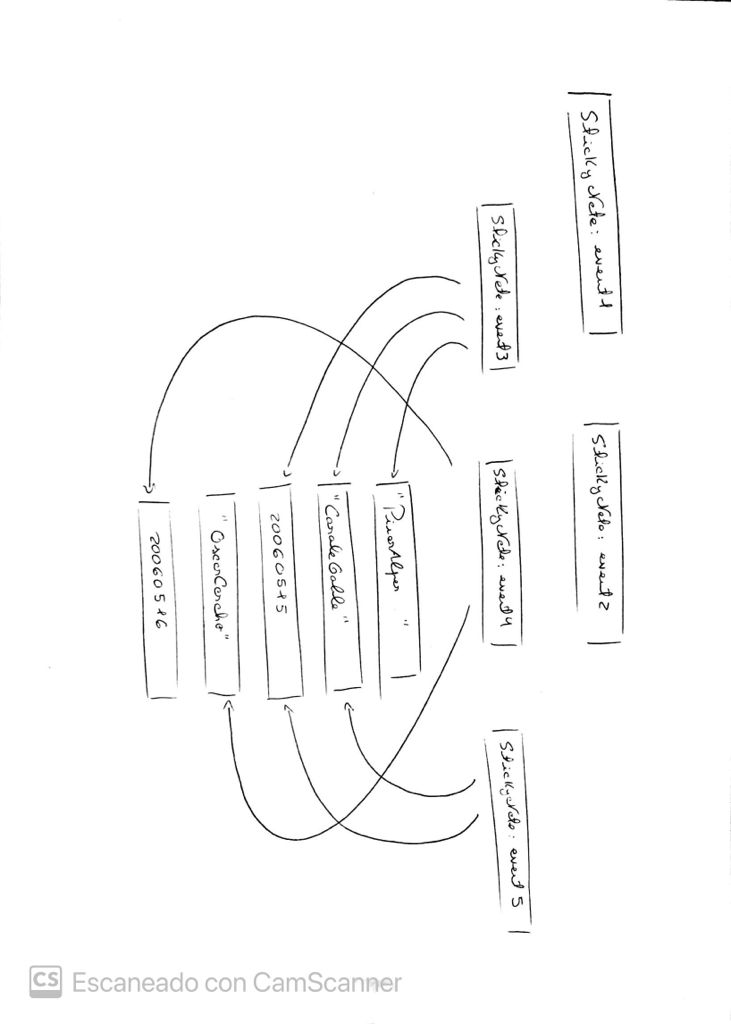 StickyNote: event1
StickyNote: event2
StickyNote: event3
StickyNote: event4
StickyNote: event5
20060515
"OscarCorcho"
20060516
CS Escaneado con CamScanner